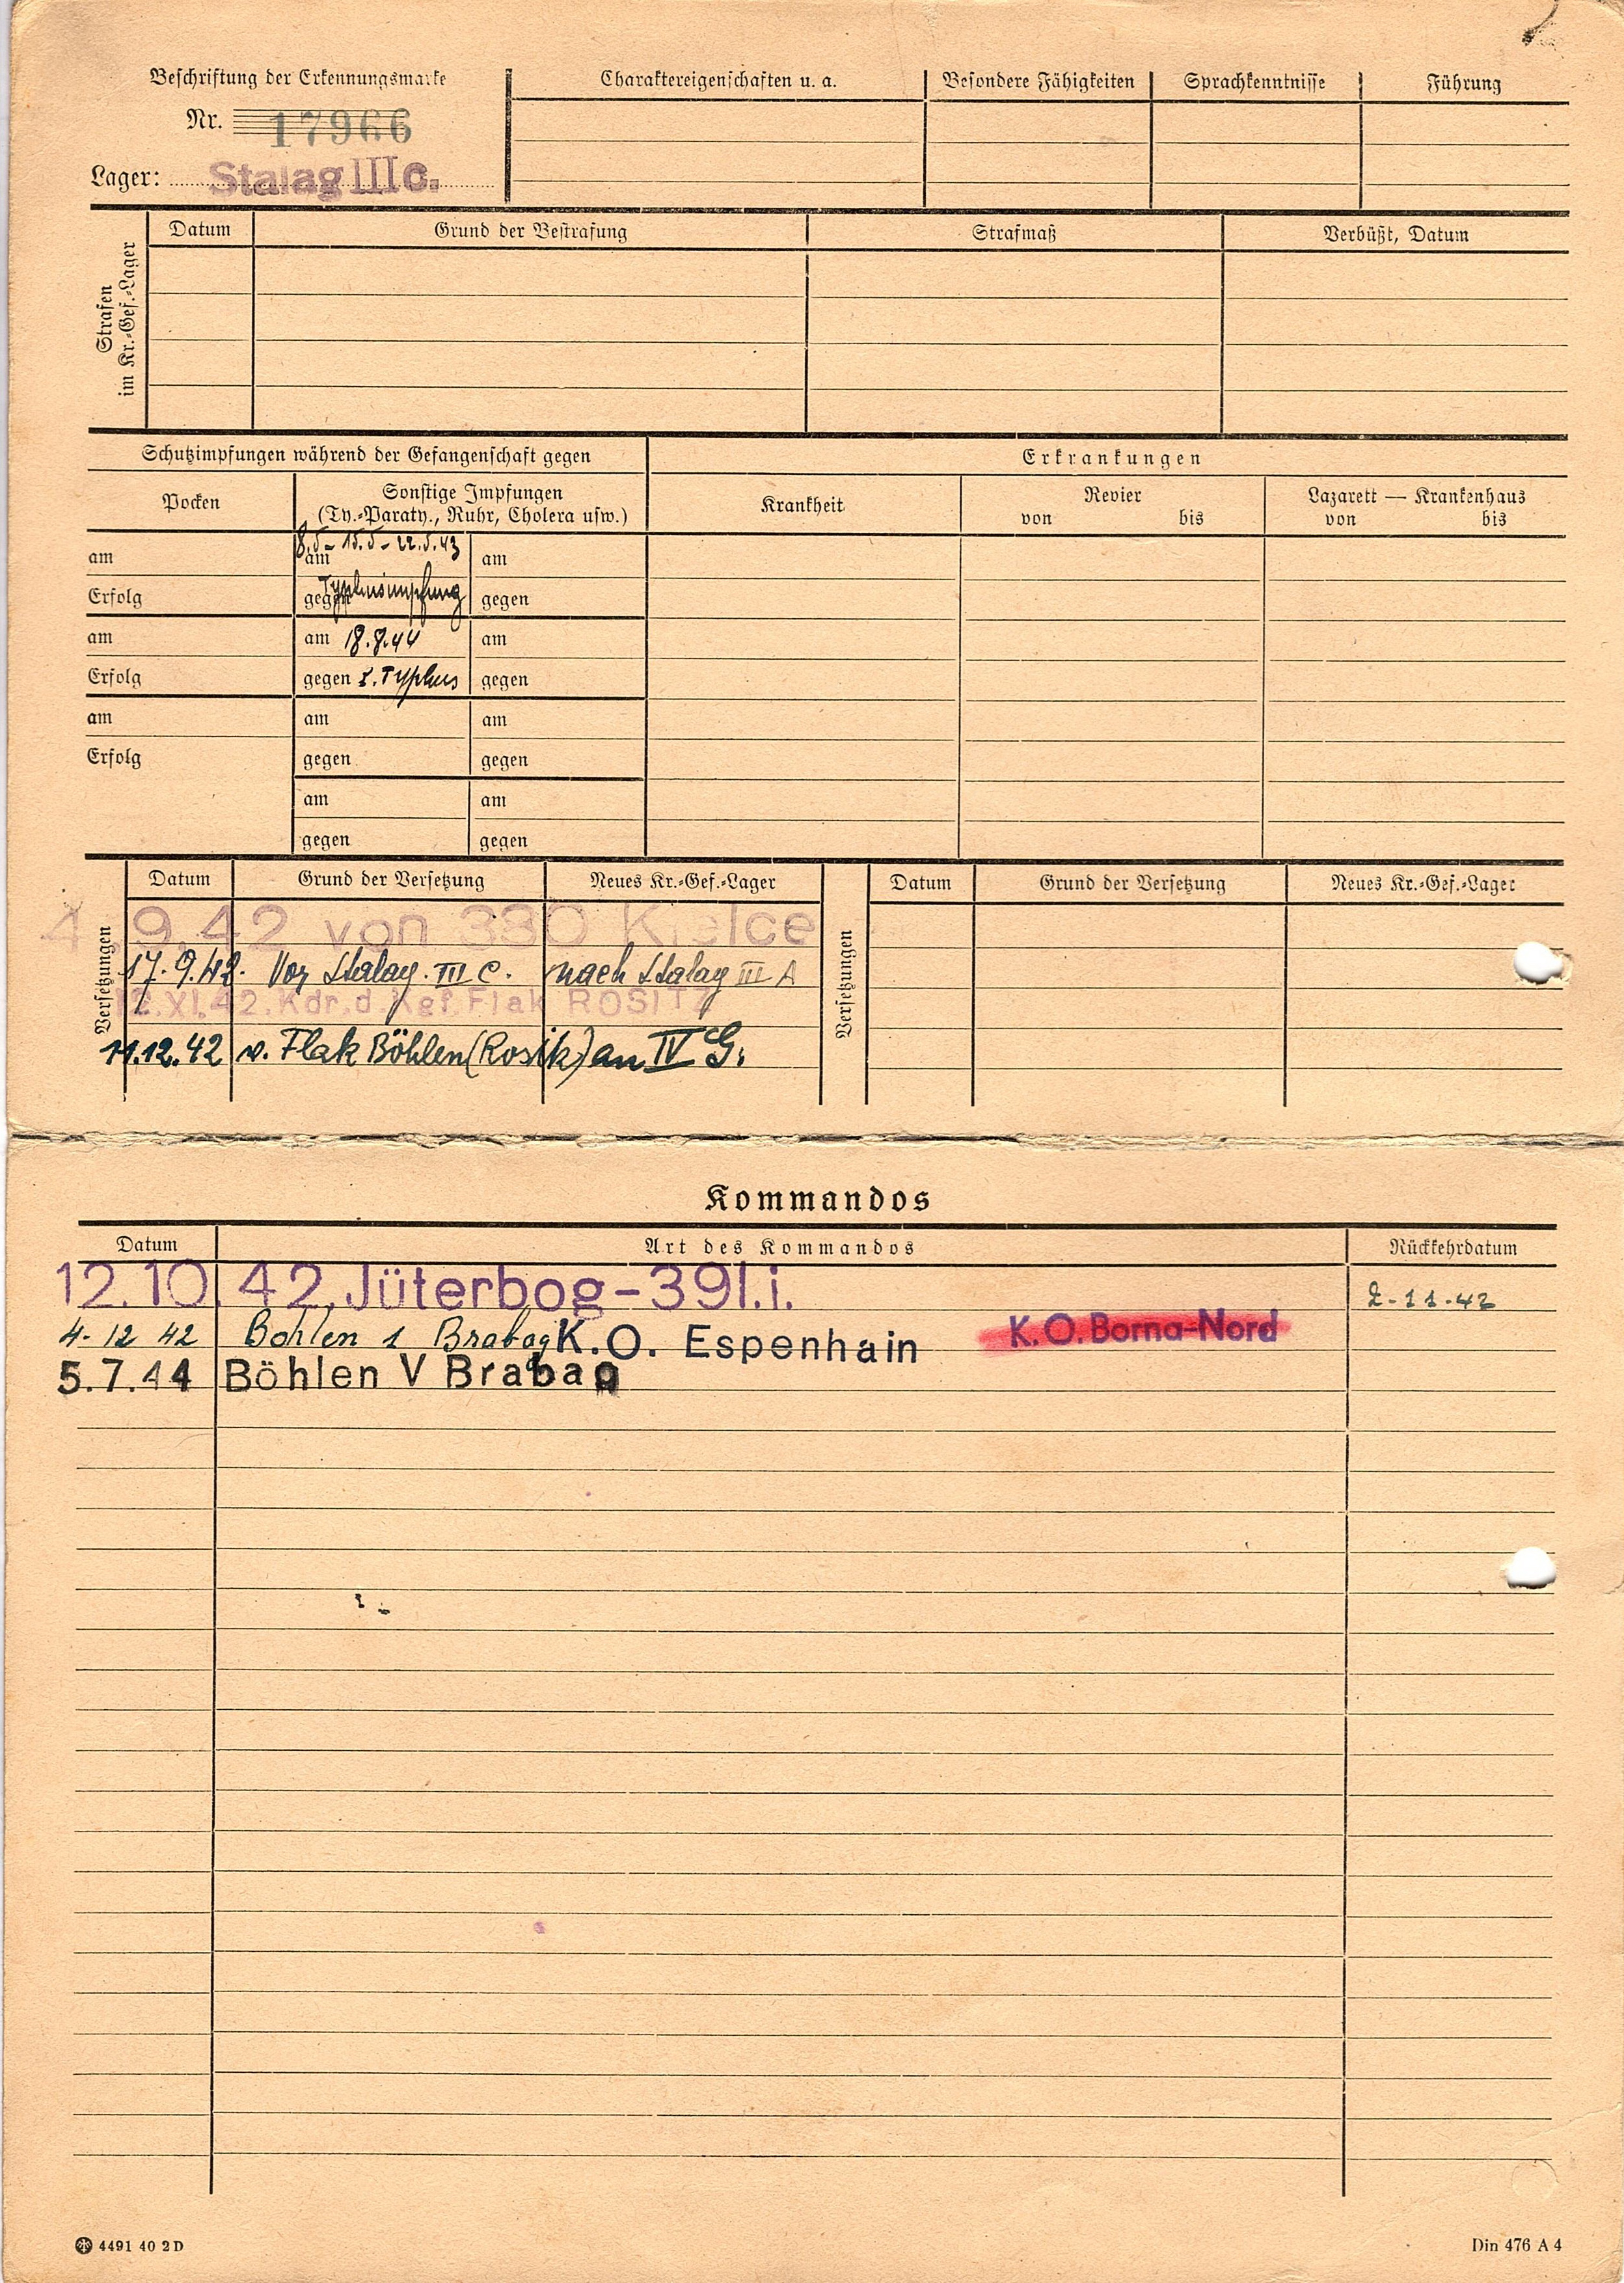 Beschriftung der Erkennungsmarke
Nr. 17966
Lager: Stalag III c.
Charaktereigenschaften u. a.
Besondere Fähigkeiten
Sprachkenntnisse
Führung
Strafen
im Kr.-Gef.-Lager
Datum
Grund der Bestrafung
Strafmaß
Verbüßt, Datum
Schutzimpfungen während der Gefangenschaft gegen
Erkrankungen
Pocken
Sonstige Impfungen
(Ty.-Paraty., Ruhr, Cholera usw.)
Krankheit
Revier
von bis
Lazarett — Krankenhaus
von bis
am
am 8.5 - 15.5 - 22.5.43
am
Erfolg
gegen Typhusimpfung
gegen
am
am 18.8.44
am
Erfolg
gegen Typhus
gegen
am
am
am
Erfolg
gegen
gegen
am
am
gegen
gegen
Versetzungen
Datum
Grund der Versetzung
Neues Kr.-Gef.-Lager
Versetzungen
Datum
Grund der Versetzung
Neues Kr.-Gef.-Lager
4.9.42 von 380 Kielce
17.9.42. Von Stalag. III C. nach Stalag III A
12.XI.42. Kdr. d. Kgf. Flak ROSITZ
11.12.42 v. Flak Böhlen (Rosik) an IV G.
Kommandos
Datum
Art des Kommandos
Rückkehrdatum
12.10.42. Jüterbog-391.i. 2-11-42
4-12 42 Bohlen 1 Brabag K.O. Espenhain K.O. Borna-Nord
5.7.44 Böhlen V Brabag
4491 40 2 D
Din 476 A 4